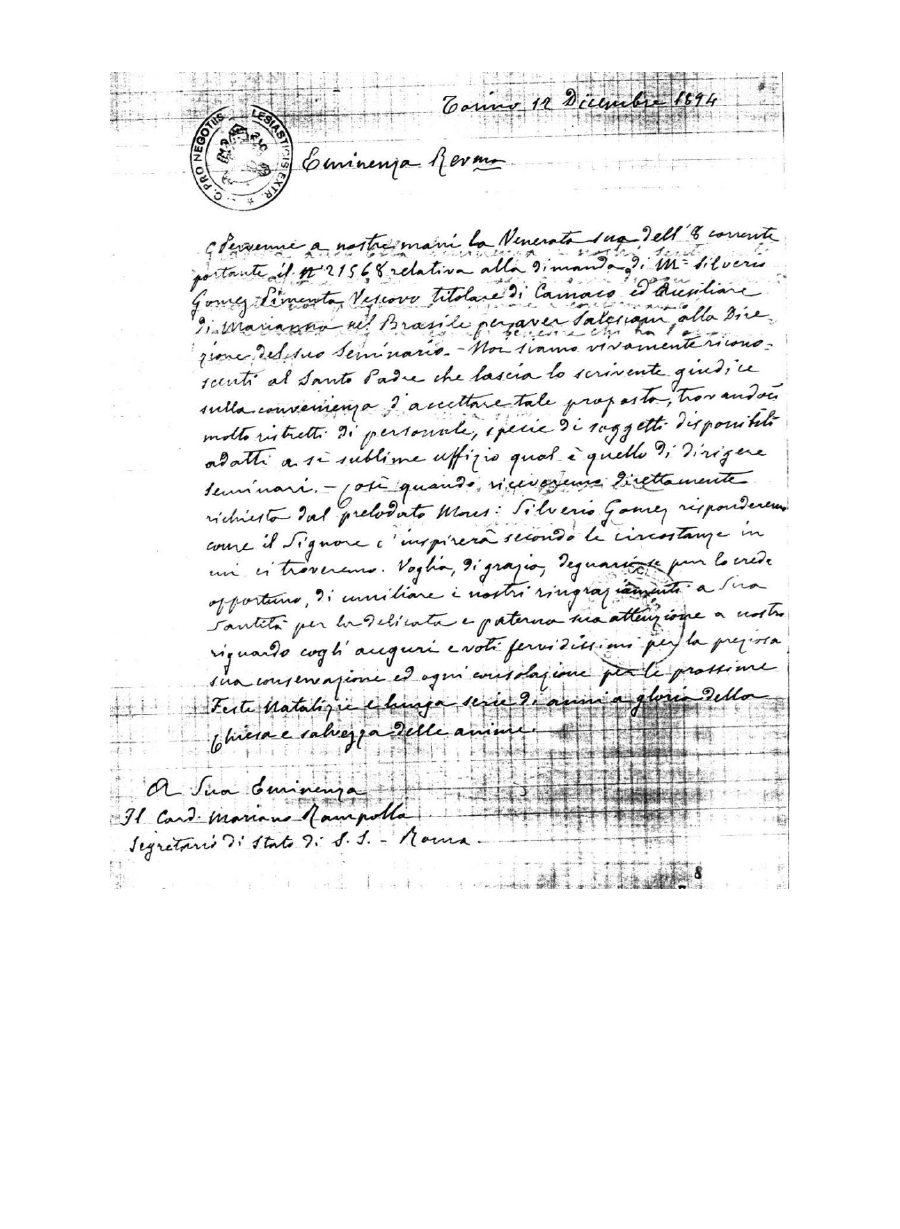 Torino 12 Dicembre 1894
C. PRO NEGOTIIS ECCLESIASTICIS EXTR.
Eminenza Revma
Pervenne a nostre mani la Venerata sua dell' 8 corrente
portante il n° 21568 relativa alla dimanda di Mr Silverio
Gomez Pimenta, Vescovo titolare di Camaco ed Ausiliare
di Marianna nel Brasile per aver Salesiani alla Dire-
zione del suo Seminario. - Noi siamo vivamente ricono-
scenti al Santo Padre che lascia lo scrivente giudice
sulla convenienza d'accettare tale proposta, trovandoci
molto ristretti di personale, specie di soggetti disponibili
adatti a sì sublime uffizio qual è quello di dirigere
seminari. - Così quando riceveremo direttamente
richiesta dal prelodato Mons: Silverio Gomez risponderemo
come il Signore c'inspirerà secondo le circostanze in
cui ci troveremo. Voglia, di grazia, degnarsi se pur lo crede
opportuno, di umiliare i nostri ringraziamenti a Sua
Santità per la delicata e paterna sua attenzione a nostro
riguardo cogli auguri e voti fervidissimi per la preziosa
sua conservazione ed ogni consolazione per le prossime
Feste Natalizie e lunga serie di anni a gloria della
Chiesa e salvezza delle anime.
A Sua Eminenza
Il Card. Mariano Rampolla
Segretario di Stato di S. S. - Roma.
8